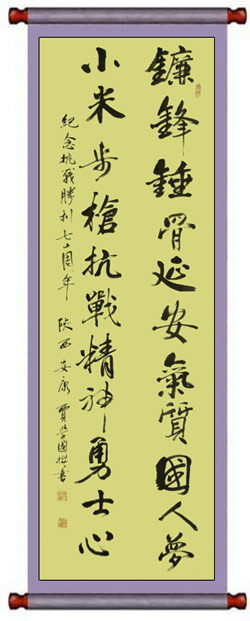 鐮鋒錘骨延安氣質國人夢
小米步槍抗戰精神勇士心
紀念抗戰勝利七十周年 陝西安康 賈學國書